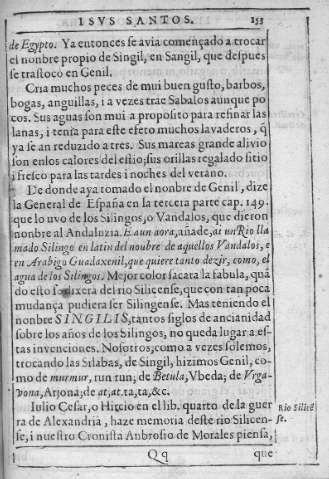 I SVS SANTOS. 153
de Egypto. Ya entonces se avia começado a trocar
el nonbre propio de Singil, en Sangil, que despues
se trastocò en Genil.
Cria muchos peces de mui buen gusto, barbos,
bogas, anguillas, i a vezes trae Sabalos aunque po
cos. Sus aguas son mui a proposito para refinar las
lanas, i tenía para este efeto muchos lavaderos, q̃
ya se an reduzido a tres. Sus mareas grande alivio
son enlos calores del estio; sus orillas regalado sitio
i fresco para las tardes i noches del verano.
De donde aya tomado el nonbre de Genil, dize
la General de España en la tercera parte cap. 149.
que lo uvo de los Silingos, o Vandalos, que dieron
nonbre al Andaluzia. E aun aora, añade, ai un Rio lla
mado Silingo en latin del nonbre de aquellos Vandalos, e
en Arabigo Guadaxenil, que quiere tanto dezir, como, el
agua de los Silingos. Mejor color sacara la fabula, quã
do esto se dixera del rio Silicense, que con tan poca
mudança pudiera ser Silingense. Mas teniendo el
nonbre SINGILIS, tantos siglos de ancianidad
sobre los años de los Silingos, no queda lugar a es-
tas invenciones. Nosotros, como a vezes solemos,
trocando las Silabas, de Singil, hizimos Genil, co-
mo de murmur, run run; de Betula, Vbeda; de Virga-
vona, Arjona; de at, at. ta, ta, &c.
Iulio Cesar, o Hircio en el lib. quarto de la guer
ra de Alexandria, haze memoria deste rio Silicen-
se, i nuestro Cronista Anbrosio de Morales piensa,
Rio Silicẽ
se.
Qq que